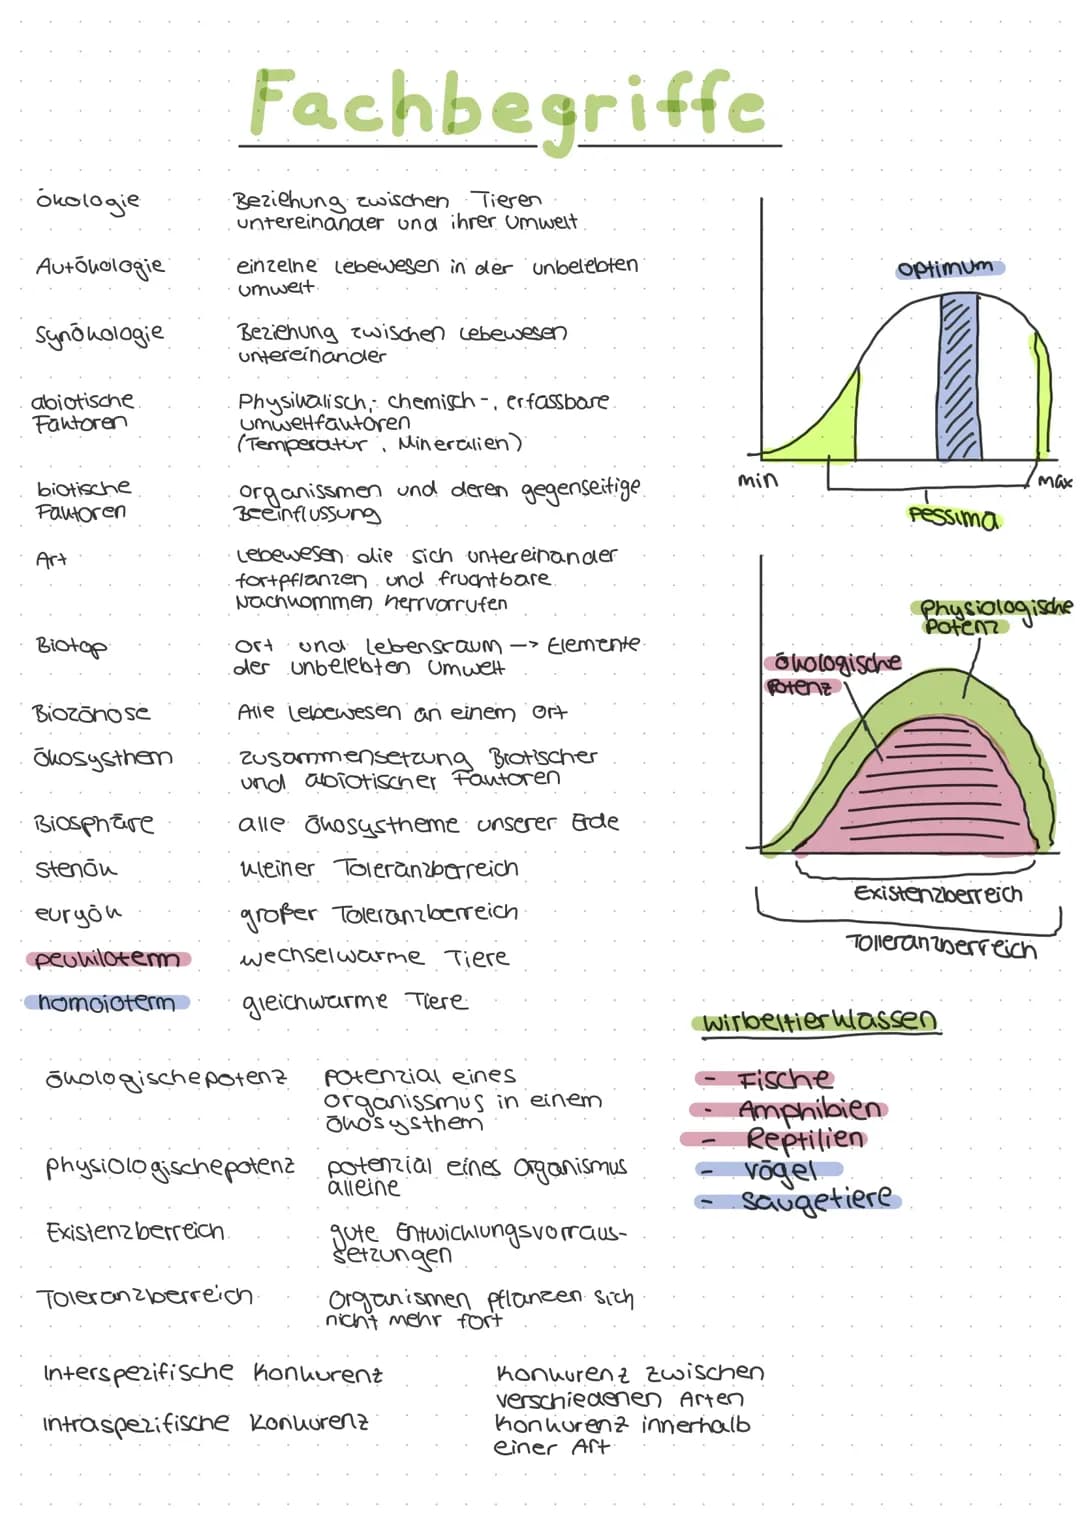 Fachbegriffe
Ökologie
Beziehung zwischen Tieren
untereinander und ihrer Umwelt
Autökologie
einzelne Lebewesen in der unbelebten
Umwelt
Synökologie
Beziehung zwischen Lebewesen
untereinander
abiotische
Faktoren
Physikalisch,- chemisch-, erfassbare
Umweltfaktoren
(Temperatur, Mineralien)
biotische
Faktoren
Organissmen und deren gegenseitige
Beeinflussung
Art
Lebewesen die sich untereinander
fortpflanzen und fruchtbare
Nachkommen herrvorrufen
Biotop
Ort und Lebensraum —> Elemente
der unbelebten Umwelt
Biozönose
Alle Lebewesen an einem Ort
Ökosysthem
Zusammensetzung Biotischer
und abiotischer Faktoren
Biosphäre
alle Ökosystheme unserer Erde
stenök
kleiner Toleranzberreich
euryök
großer Toleranzberreich
peukiloterm
wechselwarme Tiere
homoioterm
gleichwarme Tiere
ökologischepotenz
Potenzial eines
Organissmus in einem
Ökosysthem
physiologischepotenz
potenzial eines Organismus
alleine
Existenzberreich
gute Entwicklungsvorraus-
setzungen
Toleranzberreich
Organismen pflanzen sich
nicht mehr fort
Interspezifische Konkurenz
Konkurenz zwischen
verschiedenen Arten
intraspezifische Konkurenz
Konkurenz innerhalb
einer Art
optimum
min
max
Pessima
Physiologische
Potenz
ökologische
Potenz
Existenzberreich
Tolleranzberreich
Wirbeltierklassen
- Fische
- Amphibien
- Reptilien
- Vögel
- Säugetiere